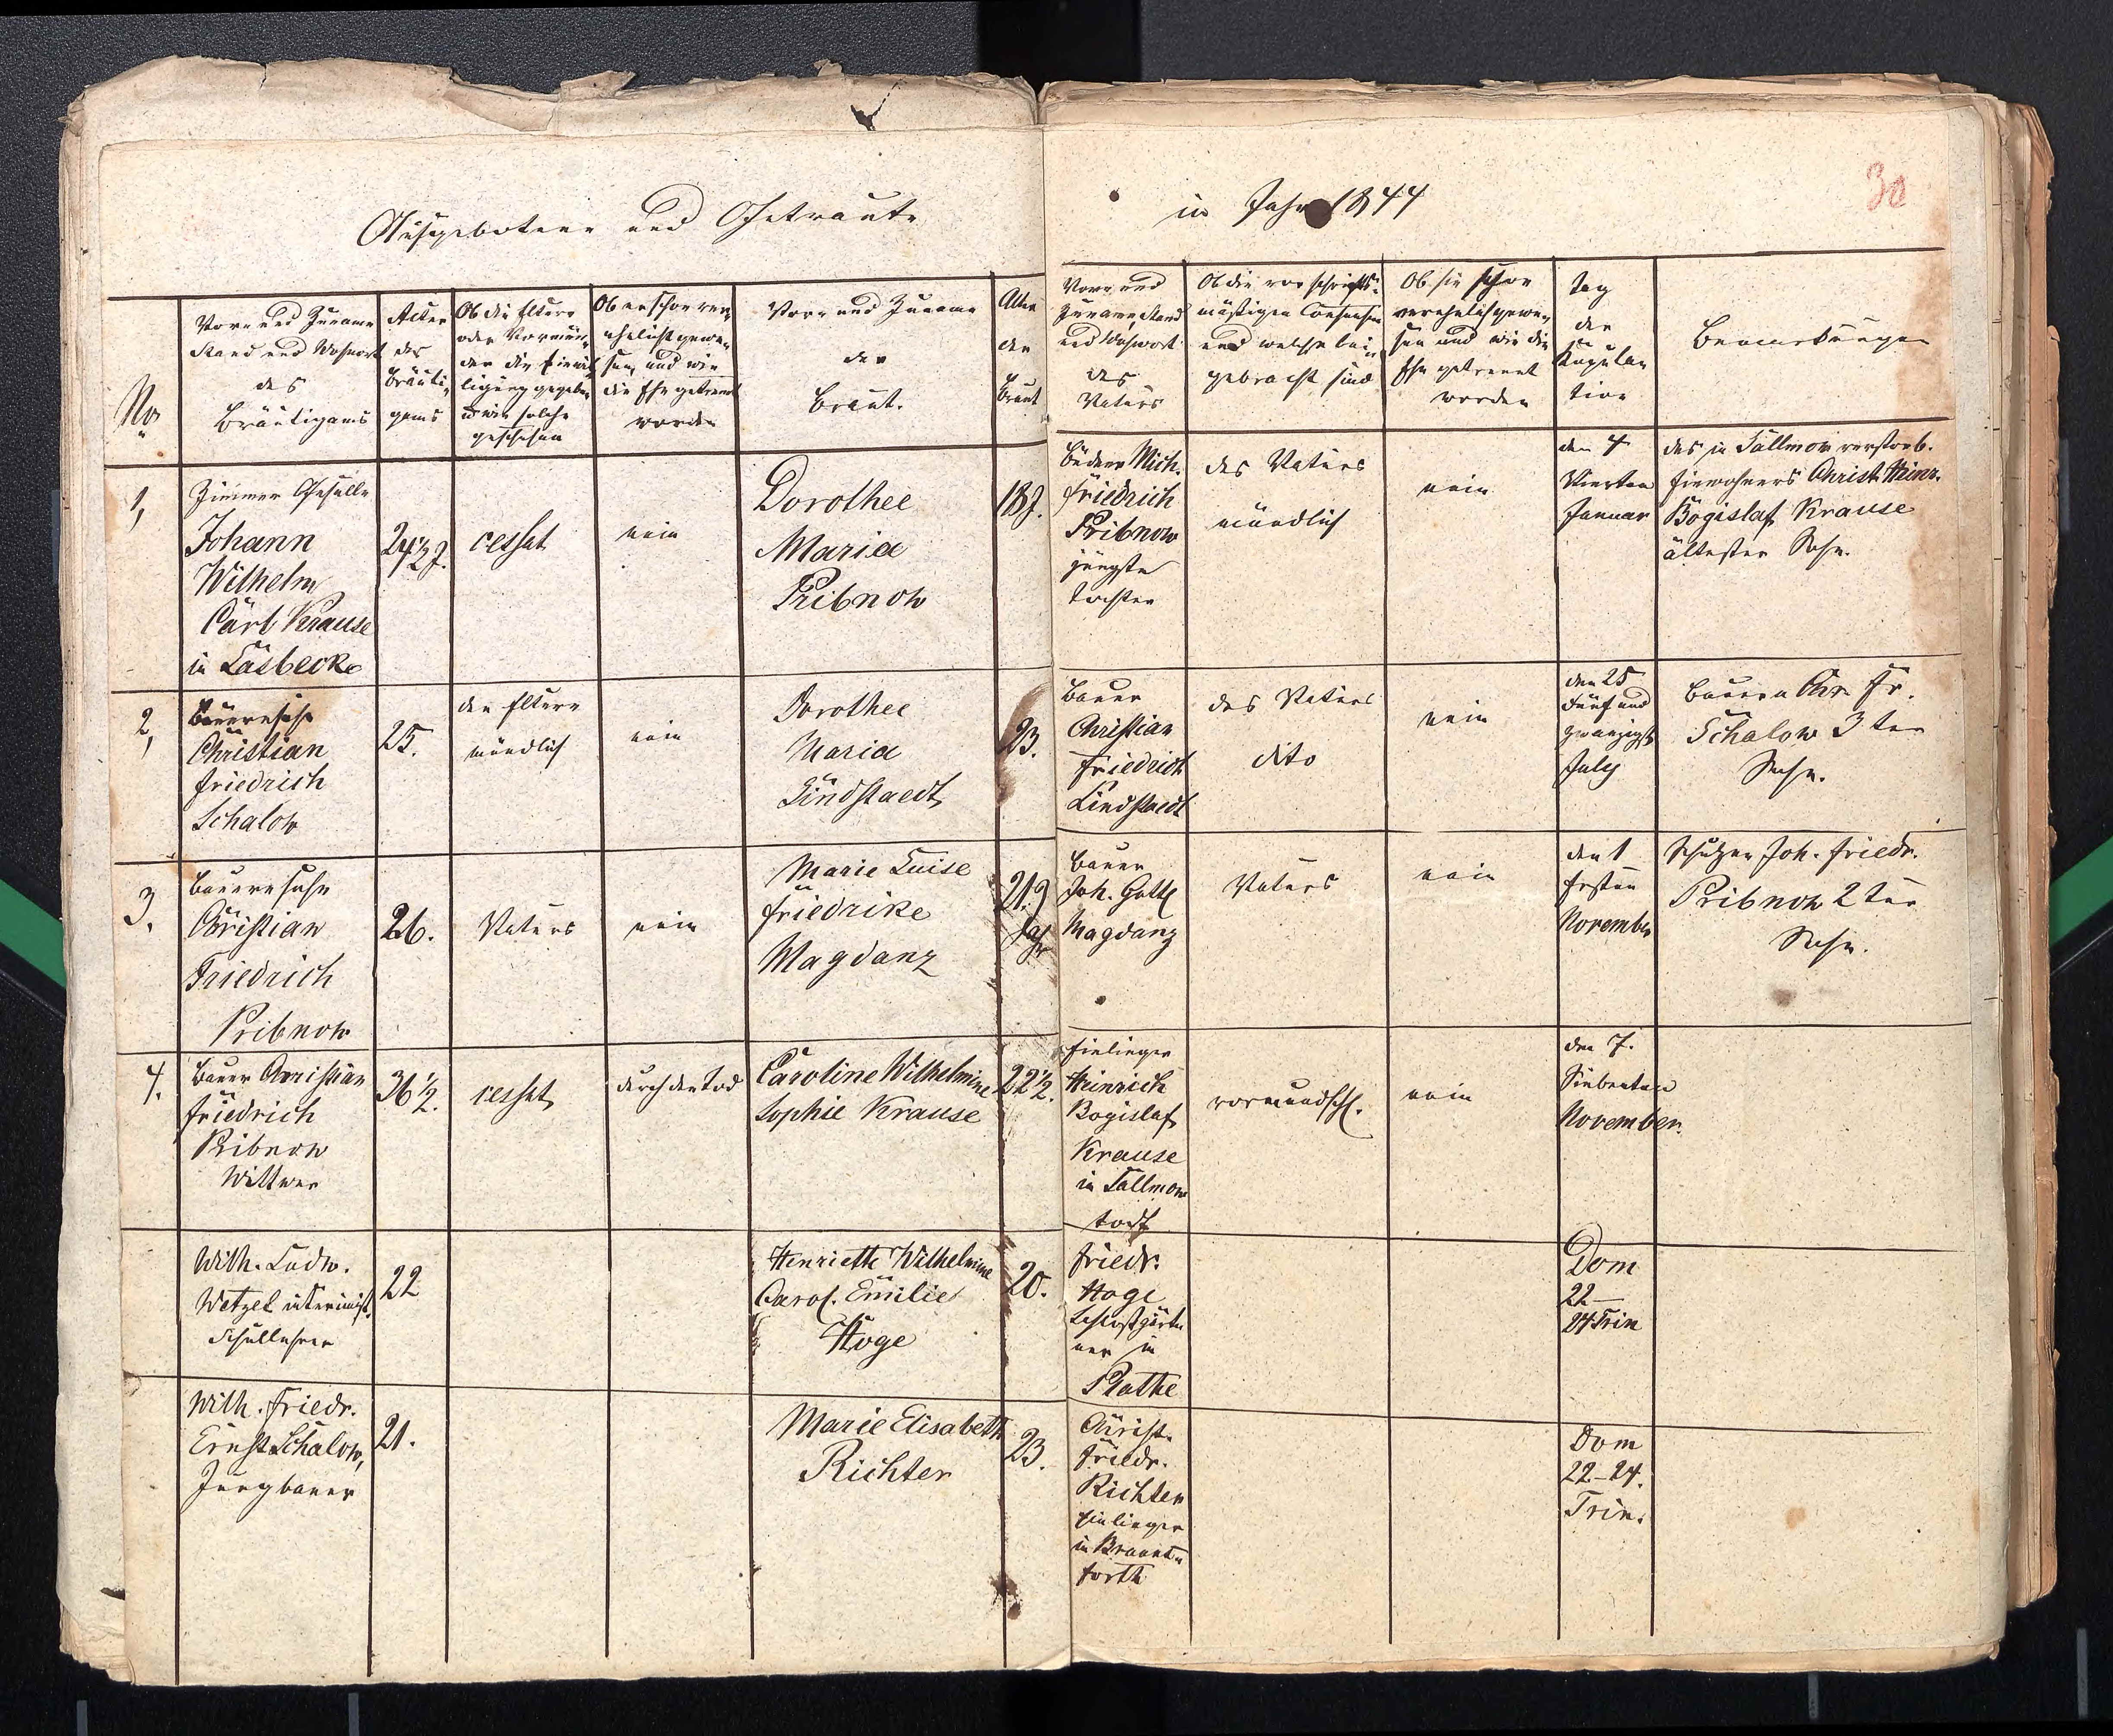 Ausgebotene und Getraute
in Jahr 1844
30
No
Vor- und Zuname
Stand und Wohnort
des
Bräutigams
Alter
des
Bräuti-
gams
Ob die Eltern
oder Vormün-
der die Einwil-
ligung gegeben
u wie solche
geschehen
Ob er schon ver-
ehelicht gewe-
sen, und wie
die Ehe getrennt
worden
Vor- und Zuname
der
Braut.
Alter
der
Braut
Vor- und
Zuname, Stand
und Wohnort
des
Vaters
Ob die vorschrifts-
mäßigen Consense
und welche bei-
gebracht sind
Ob sie schon
verehelicht gewe-
sen und wie die
Ehe getrennt
worden
Tag
der
Kopula-
tion
Bemerkungen
1,
Zimmer Geselle
Johann
Wilhelm
Carl Krause
in Lasbeck
24½ J.
cessat
nein
Dorothee
Maria
Pribnow
18 J.
Büdner Mich.
Friedrich
Pribnow
jüngste
Tochter
des Vaters
mündlich
nein
den 4
Vierten
Januar
des in Tallmow verstorb.
Einwohners Christ. Heinr.
Bogislaf Krause
ältester Sohn.
2,
Bauernsohn
Christian
Friedrich
Schalow
25.
den Eltern
mündlich
nein
Dorothee
Maria
Lindstaedt
23.
Bauer
Christian
Friedrich
Lindstaedt
des Vaters
dito
nein
den 25
Fünf und
zwanzigst
July
Bauern Chr. Fr.
Schalow 3 ter
Sohn.
3.
Bauernsohn
Christian
Friedrich
Pribnow
26.
Vaters
nein
Marie Luise
Friedrike
Magdanz
21.
Jahr
Bauer
Joh. Gottl
Magdanz
Vaters
nein
den 1
Ersten
November
Schulzen Joh. Friedr.
Pribnow 2 ter
Sohn.
4.
Bauer Christian
Friedrich
Pribnow
Wittwer
36½.
cessat
durch den Tod
Caroline Wilhelmine
Sophie Krause
22½.
Einlieger
Heinrich
Bogislaf
Krause
in Tallmow
todt
vormundschl.
nein
den 7.
Siebenten
November.
Wilh. Ludw.
Wetzel interimist.
Schullehrer
22
Henriette Wilhelmine
Carol. Emilie
Hoge
20.
Friedr.
Hoge
Schloßgärt
ner in
Plathe
Dom
22 —
24 Trin
Wilh. Friedr.
Ernst Schalow,
Jungbauer
21.
Marie Elisabeth
Richter
23.
Christ.
Friedr.
Richter
Einlieger
in Braunsforth
Dom
22.–24.
Trin.